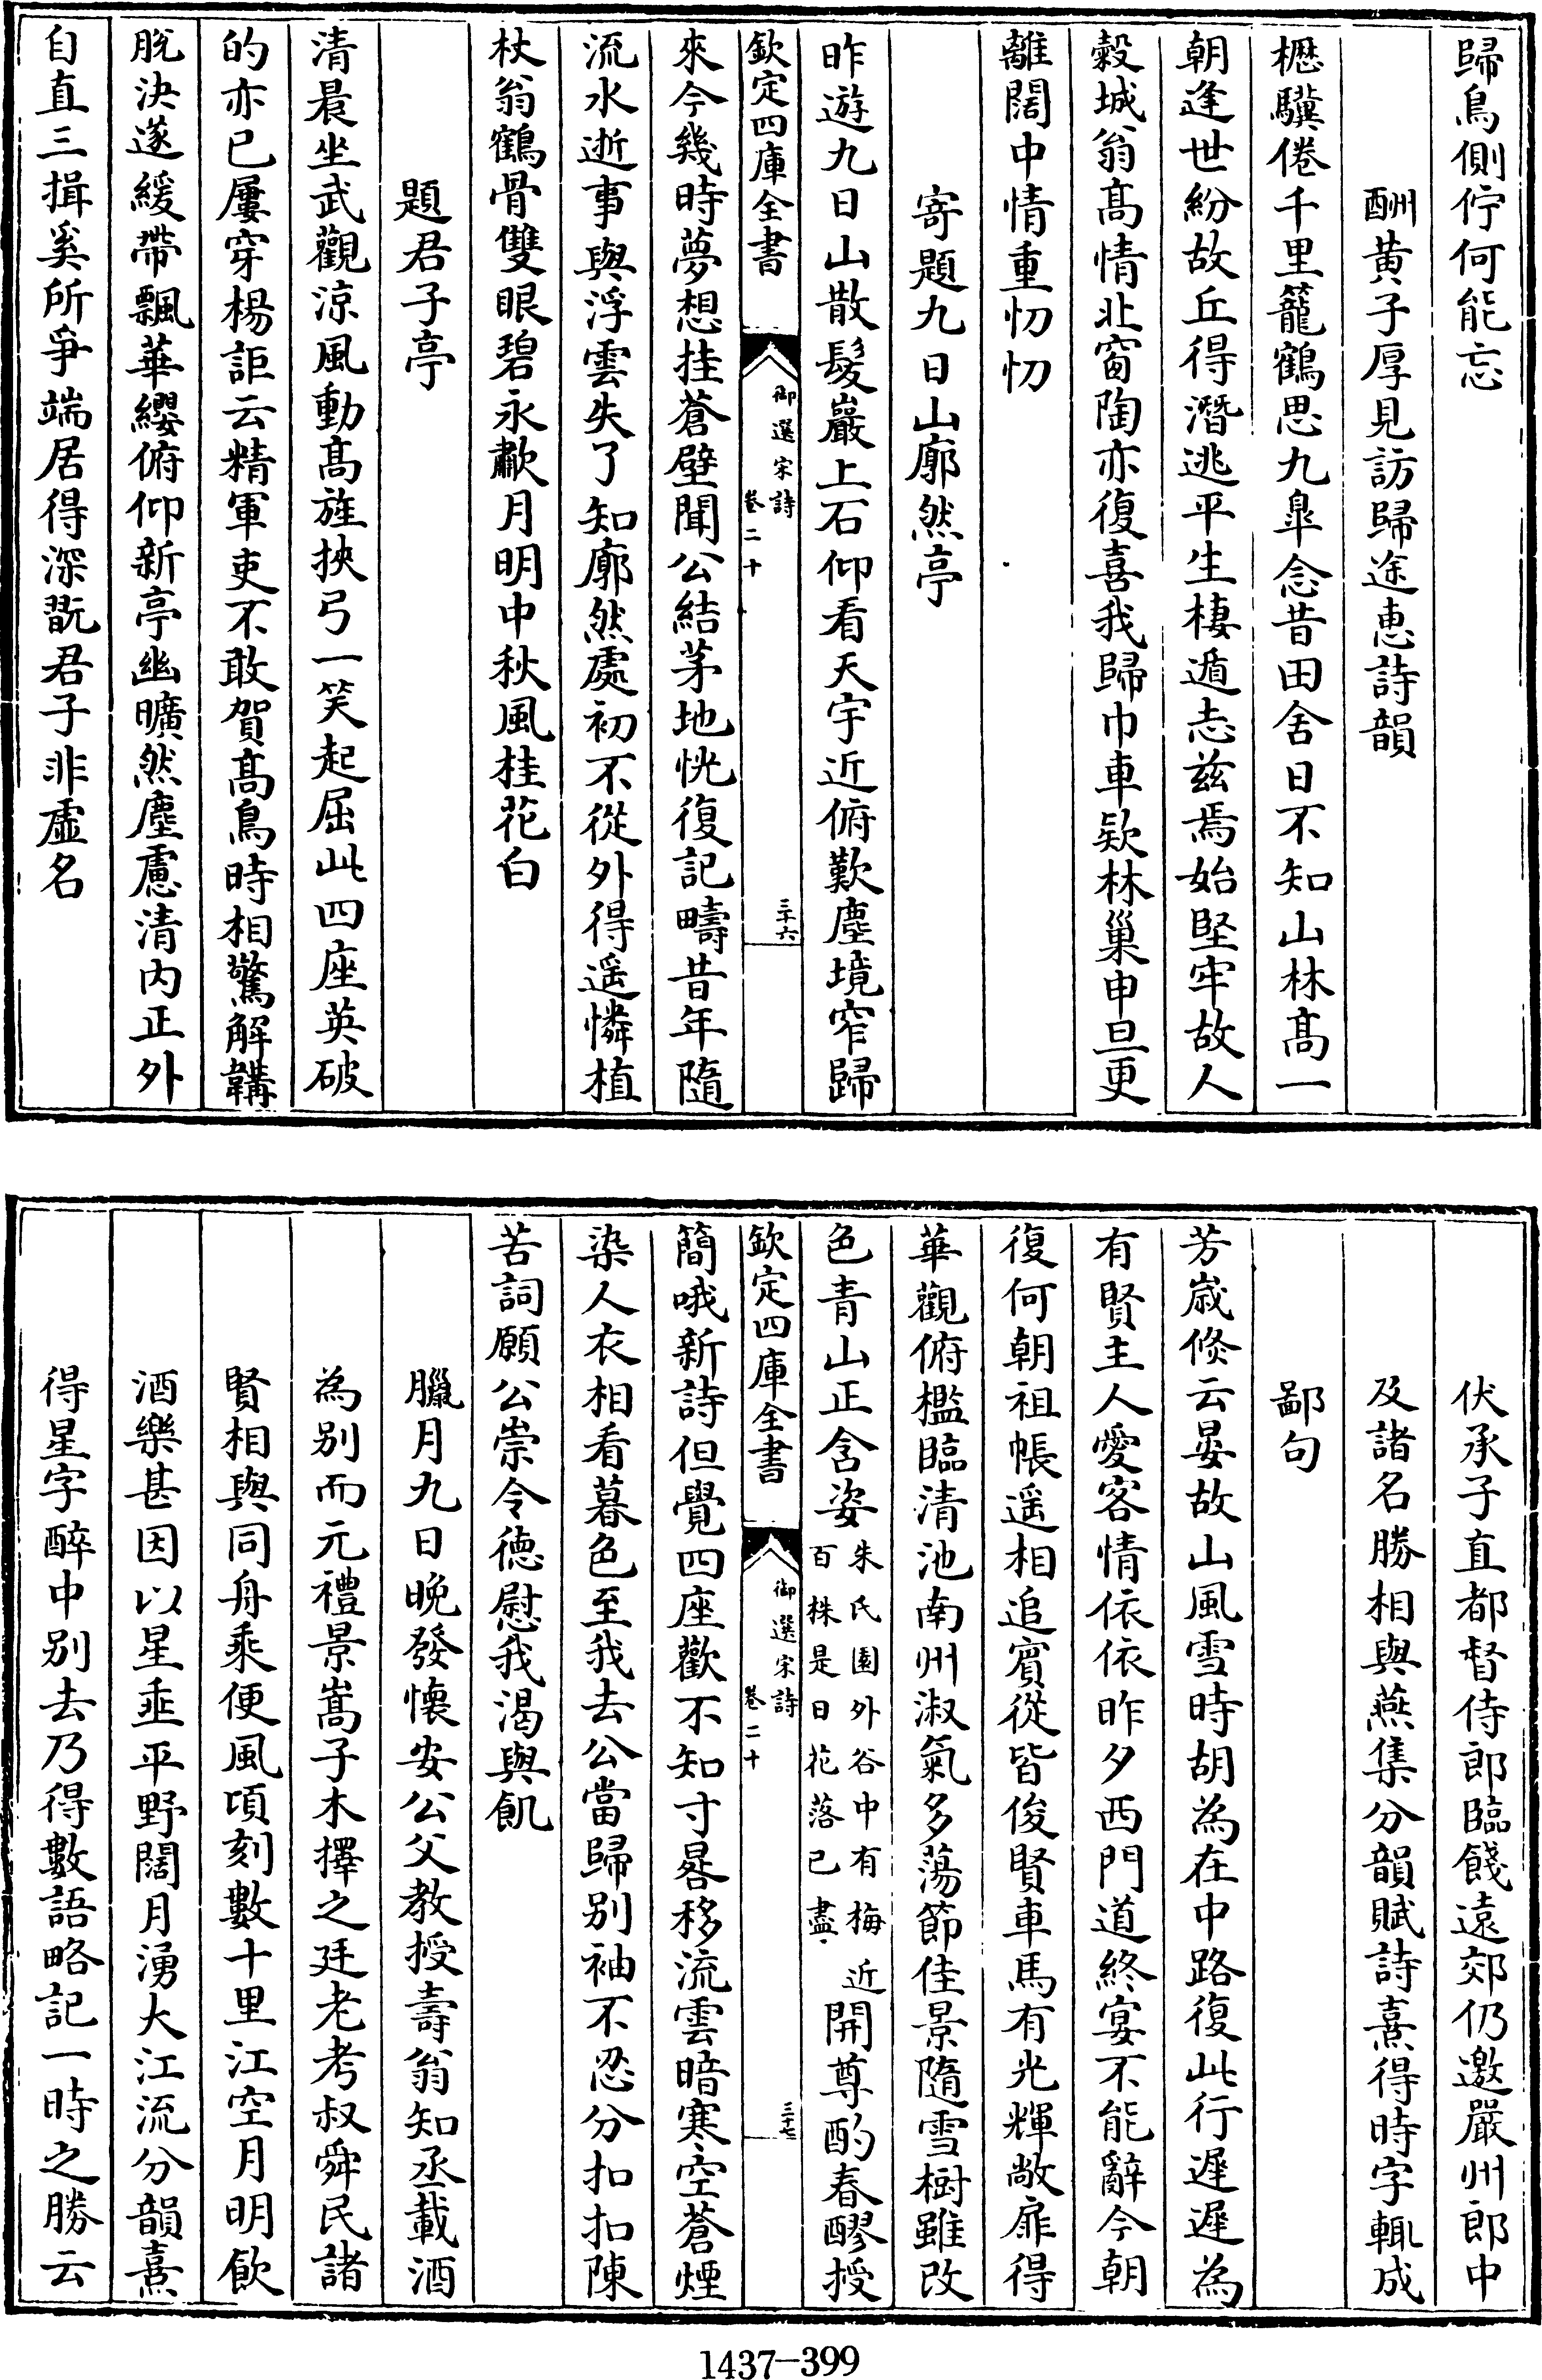 歸鳥側佇何能忘
酬黄子厚見訪歸途惠詩韻
櫪驥倦千里籠鶴思九臯念昔田舍日不知山林髙一
朝逢世紛故丘得潛逃平生棲遁志兹焉始堅牢故人
穀城翁髙情北窗陶亦復喜我歸巾車欵林巢申旦更
離闊中情重忉忉
寄題九日山廓然亭
昨遊九日山散髮巖上石仰看天宇近俯歎塵境窄歸
欽定四庫全書
御選宋詩
卷二十
三十六
來今幾時夢想挂蒼壁聞公結茅地恍復記疇昔年隨
流水逝事與浮雲失了知廓然處初不從外得遥憐植
杖翁鶴骨雙眼碧永歗月明中秋風桂花白
題君子亭
清晨坐武觀涼風動髙旌挾弓一笑起屈此四座英破
的亦已屢穿楊詎云精軍吏不敢賀髙鳥時相驚解鞲
脱決遂緩帶飄華纓俯仰新亭幽曠然塵慮清内正外
自直三揖奚所爭端居得深翫君子非虛名
伏承子直都督侍郎臨餞遠郊仍邀嚴州郎中
及諸名勝相與燕集分韻賦詩熹得時字輒成
鄙句
芳歲倐云晏故山風雪時胡為在中路復此行遲遲為
有賢主人愛客情依依昨夕西門道終宴不能辭今朝
復何朝祖帳遥相追賓從皆俊賢車馬有光輝敞扉得
華觀俯檻臨清池南州淑氣多蕩節佳景隨雪樹雖改
色青山正含姿朱氏園外谷中有梅近百株是日花落已盡開尊酌春醪授
欽定四庫全書
御選宋詩
卷二十
三十七
簡哦新詩但覺四座歡不知寸晷移流雲暗寒空蒼煙
染人衣相看暮色至我去公當歸别袖不忍分扣扣陳
苦詞願公崇令徳慰我渴與飢
臘月九日晚發懷安公父教授壽翁知丞載酒
為别而元禮景嵩子木擇之廷老考叔舜民諸
賢相與同舟乘便風頃刻數十里江空月明飲
酒樂甚因以星垂平野闊月湧大江流分韻熹
得星字醉中别去乃得數語略記一時之勝云
1437-399